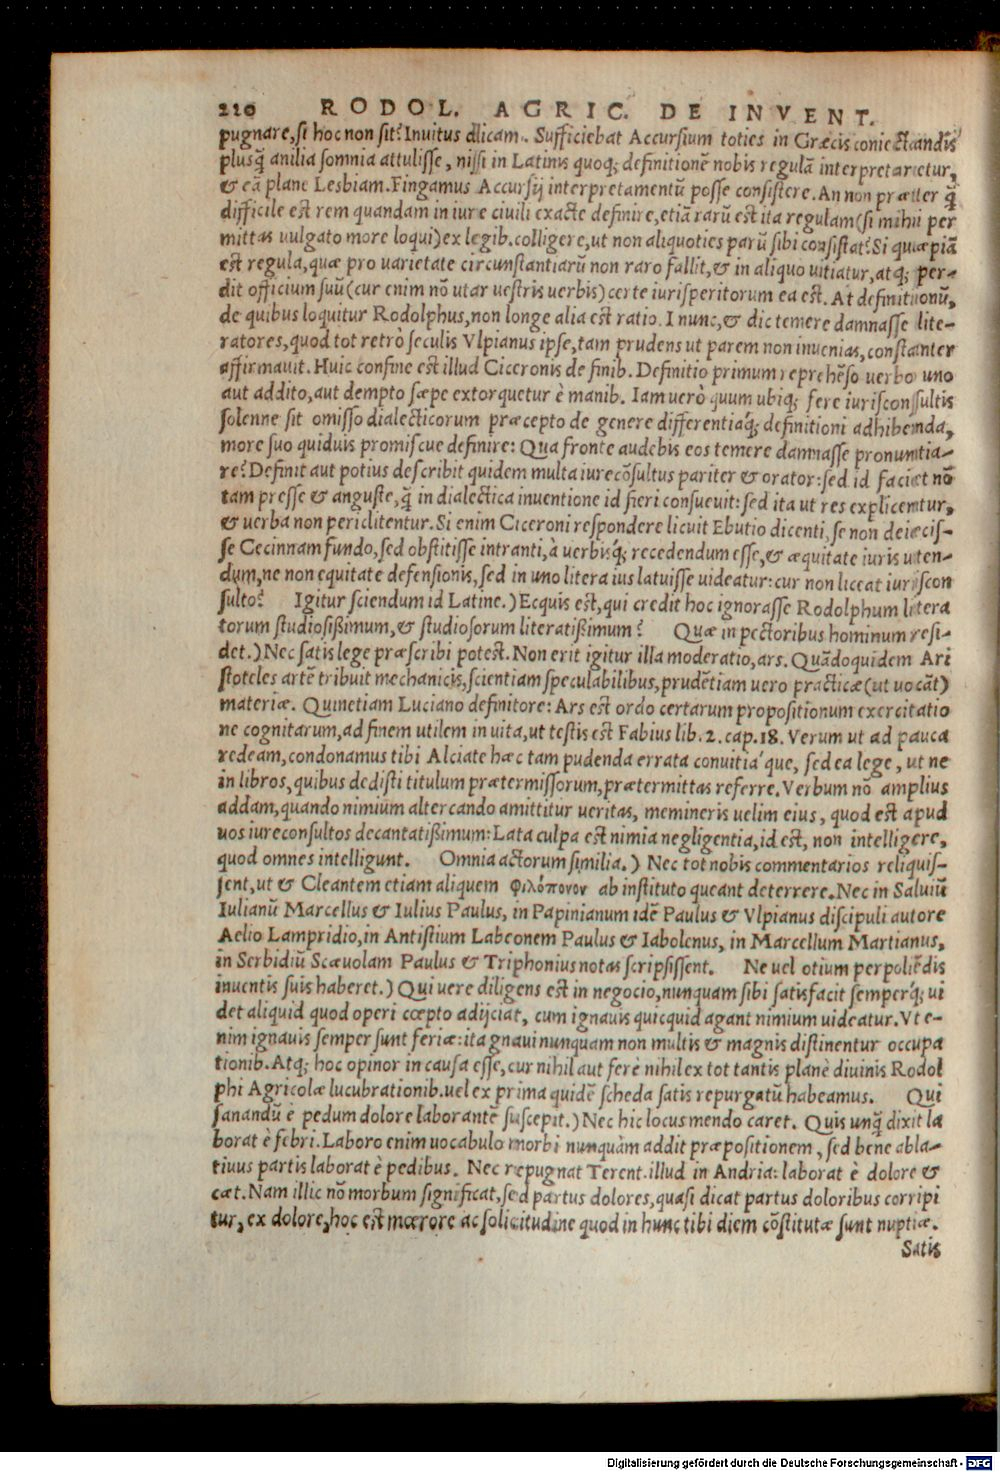 210 RODOL. AGRIC. DE INVENT.
pugnare, si hoc non sit? Inuitus dicam. Sufficiebat Accursium toties in Græcis coniectandis
plusq̃ anilia somnia attulisse, nisi in Latinis quoq; definitionẽ nobis regulã interpretaretur,
& eã plane Lesbiam. Fingamus Accursij interpretamentũ posse consistere. An non præter q̃
difficile est rem quandam in iure ciuili exacte definire, etiã rarũ est ita regulam (si mihi per
mittas uulgato more loqui) ex legib. colligere, ut non aliquoties parũ sibi consistat? Si quæpiã
est regula, quæ pro uarietate circunstantiarũ non raro fallit, & in aliquo uitiatur, atq; per-
dit officium suũ (cur enim nõ utar uestris uerbis) certe iurisperitorum ea est. At definitionũ,
de quibus loquitur Rodolphus, non longe alia est ratio. I nunc, & dic temere damnasse lite-
ratores, quod tot retrò seculis Vlpianus ipse, tam prudens ut parem non inuenias, constanter
affirmauit. Huic confine est illud Ciceronis de finib. Definitio primum reprehẽso uerbo uno
aut addito, aut dempto sæpe extorquetur è manib. Iam uerò quum ubiq; fere iurisconsultis
solenne sit omisso dialecticorum præcepto de genere differentiaq́; definitioni adhibenda,
more suo quiduis promiscue definire: Qua fronte audebis eos temere damnasse pronuntia-
re? Definit aut potius describit quidem multa iurecõsultus pariter & orator: sed id faciet nõ
tam presse & anguste, q̃ in dialectica inuentione id fieri consueuit: sed ita ut res explicentur,
& uerba non periclitentur. Si enim Ciceroni respondere licuit Ebutio dicenti, se non deiecis-
se Cecinnam fundo, sed obstitisse intranti, à uerbisq́; recedendum esse, & æquitate iuris uten-
dum, ne non equitate defensionis, sed in uno litera ius latuisse uideatur: cur non liceat iuriscon
sulto? Igitur sciendum id Latine.) Ecquis est, qui credit hoc ignorasse Rodolphum litera
torum studiosißimum, & studiosorum literatißimum? Quæ in pectoribus hominum resi-
det.) Nec satis lege præscribi potest. Non erit igitur illa moderatio, ars. Quãdoquidem Ari
stoteles artẽ tribuit mechanicis, scientiam speculabilibus, prudẽtiam uero practicæ (ut uocãt)
materiæ. Quinetiam Luciano definitore: Ars est ordo certarum propositionum exercitatio
ne cognitarum, ad finem utilem in uita, ut testis est Fabius lib. 2. cap. 18. Verum ut ad pauca
redeam, condonamus tibi Alciate hæc tam pudenda errata conuitia'que, sed ea lege, ut ne
in libros, quibus dedisti titulum prætermissorum, prætermittas referre. Verbum nõ amplius
addam, quando nimium altercando amittitur ueritas, memineris uelim eius, quod est apud
uos iureconsultos decantatißimum: Lata culpa est nimia negligentia, id est, non intelligere,
quod omnes intelligunt. Omnia actorum similia.) Nec tot nobis commentarios reliquis-
sent, ut & Cleantem etiam aliquem φιλόπονον ab instituto queant deterrere. Nec in Saluiũ
Iulianũ Marcellus & Iulius Paulus, in Papinianum idẽ Paulus & Vlpianus discipuli autore
Aelio Lampridio, in Antistium Labeonem Paulus & Iabolenus, in Marcellum Martianus,
in Serbidiũ Scæuolam Paulus & Triphonius notas scripsissent. Ne uel otium perpoliẽdis
inuentis suis haberet.) Qui uere diligens est in negocio, nunquam sibi satisfacit semperq́; ui
det aliquid quod operi cœpto adijciat, cum ignauis quicquid agant nimium uideatur. Vt e-
nim ignauis semper sunt feriæ: ita gnaui nunquam non multis & magnis distinentur occupa
tionib. Atq; hoc opinor in causa esse, cur nihil aut ferè nihil ex tot tantis planè diuinis Rodol
phi Agricolæ lucubrationib. uel ex prima quidẽ scheda satis repurgatũ habeamus. Qui
sanandũ è pedum dolore laborantẽ suscepit.) Nec hic locus mendo caret. Quis unq̃ dixit la
borat è febri. Laboro enim uocabulo morbi nunquàm addit præpositionem, sed bene abla-
tiuus partis laborat è pedibus. Nec repugnat Terent. illud in Andria: laborat è dolore &
cæt. Nam illic nõ morbum significat, sed partus dolores, quasi dicat partus doloribus corripi
tur, ex dolore, hoc est mœrore ac solicitudine quod in hunc tibi diem cõstitutæ sunt nuptiæ.
Satis
Digitalisierung gefördert durch die Deutsche Forschungsgemeinschaft - DFG